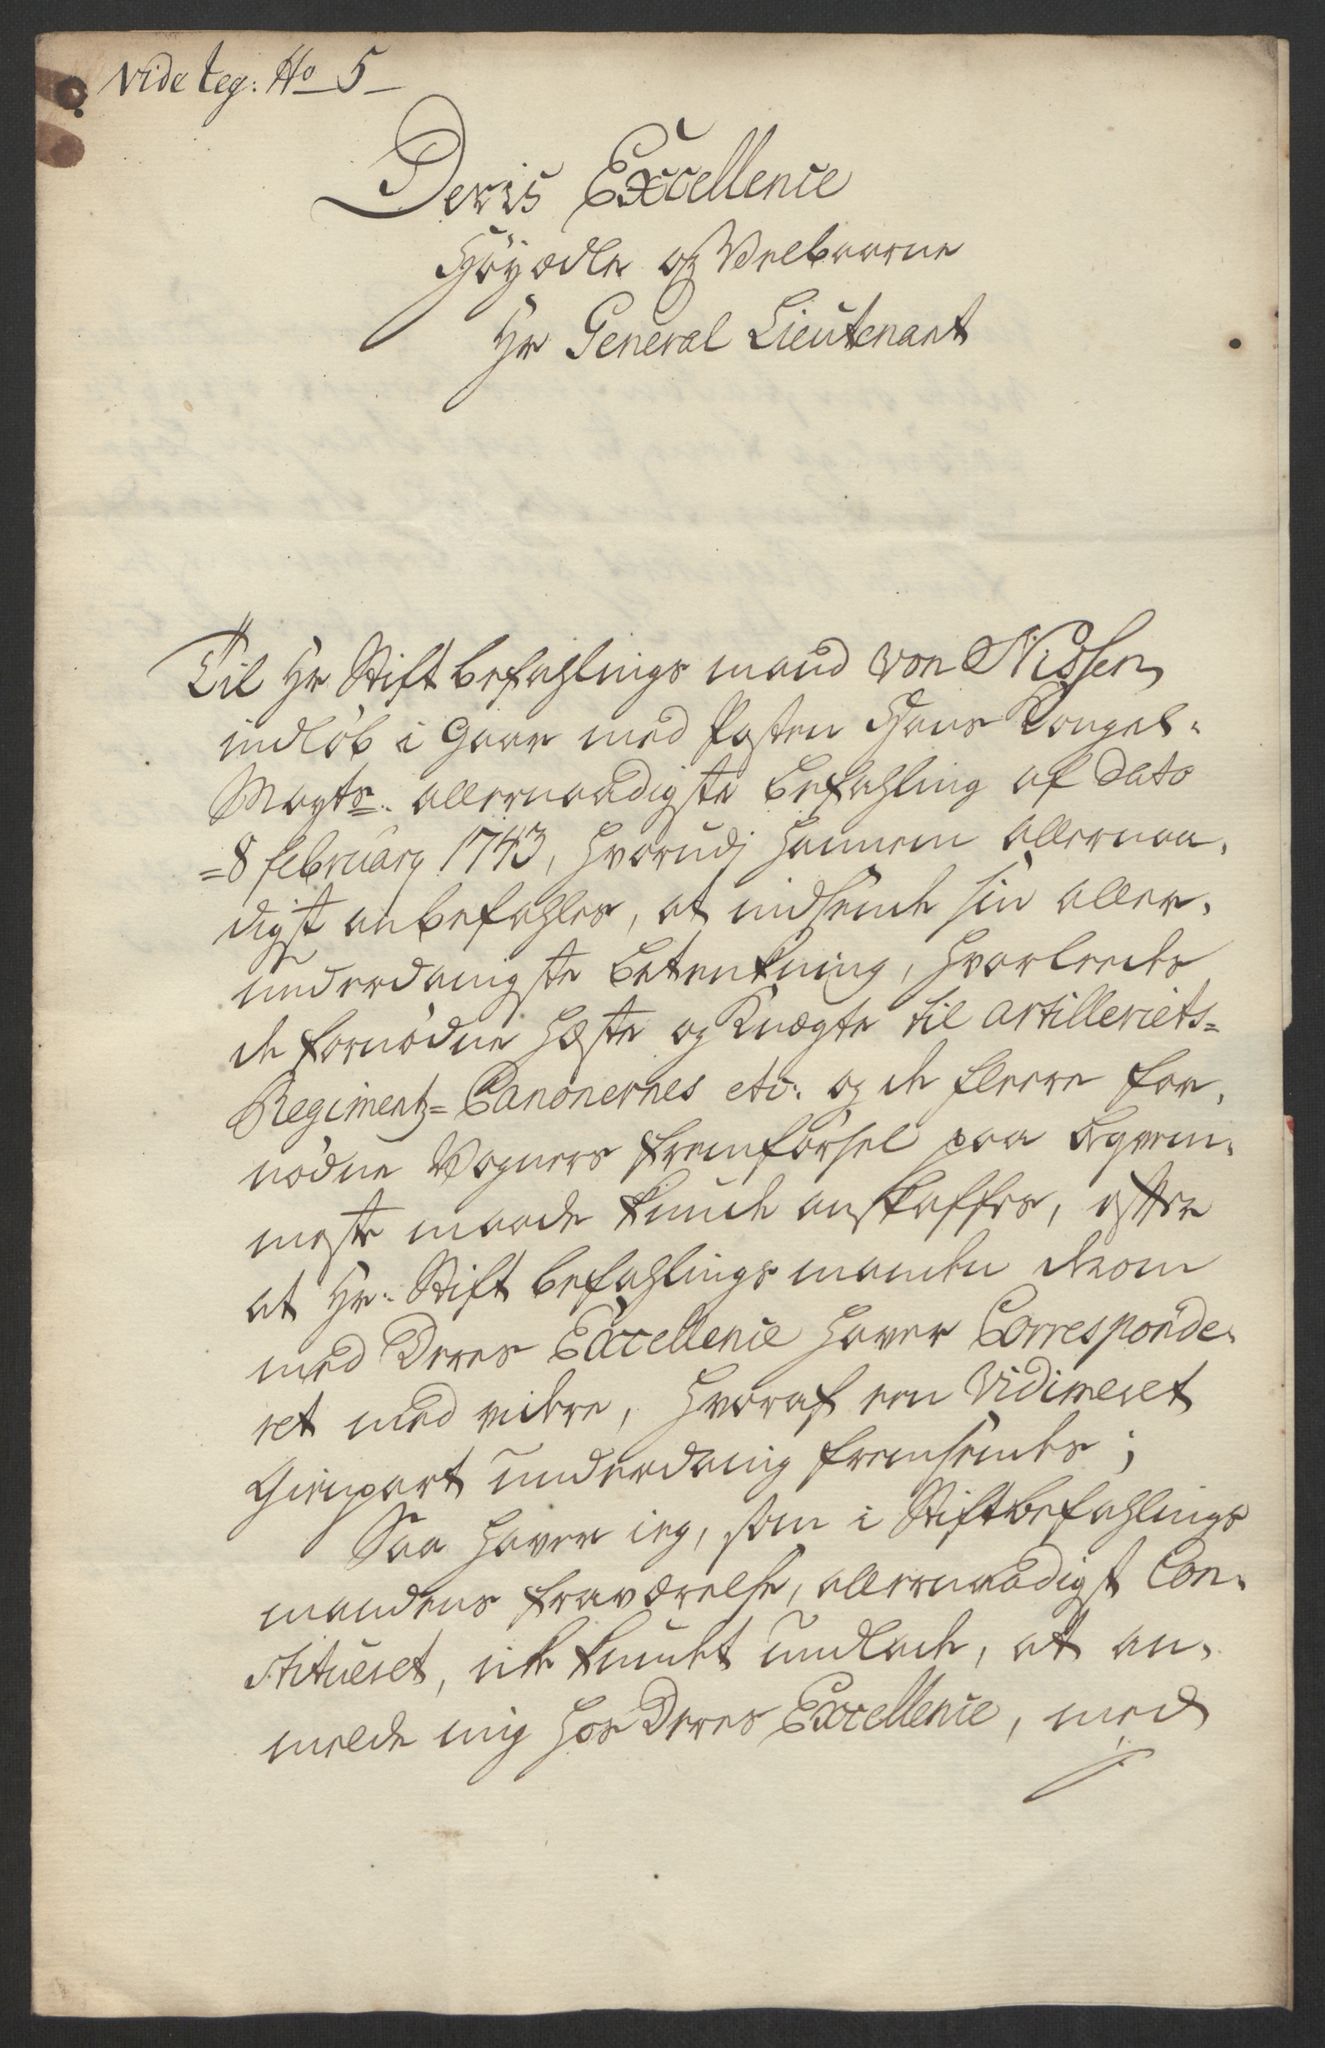 Vide leg: No 5
Deris Excellence
Höyædle og Velbaarne
Hr General Lieutenant
Til Hr Stiftbefahlings mand von Nissen
indlöb i Gaar med Posten Hans Kongel:
Mayts: allernaadigste befahling af dato
=8 february 1743, hvorudj hannem allernaa,
digst anbefahles, at indsende sin aller,
underdanigste betenkning, hvorleedes
de fornödne hæste og Knægte til Artilleriets=
Regiments=Canonernes etc: og de fleere for,
nödne Vogners fremförsel paa beqvem,
meste maade kunde anskaffes, efter
at Hr: Stiftbefahlings manden derom
med Deres Excellence haver Corresponde,
ret med videre, hvoraf een Vidimeret
Gienpart underdanig fremsendes;
Saa haver ieg, som i Stiftbefahlings
mandens fraværelse, allernaadigst Con,
stitueret, icke kundet undlade, at an,
melde mig hos Deres Excellence, med